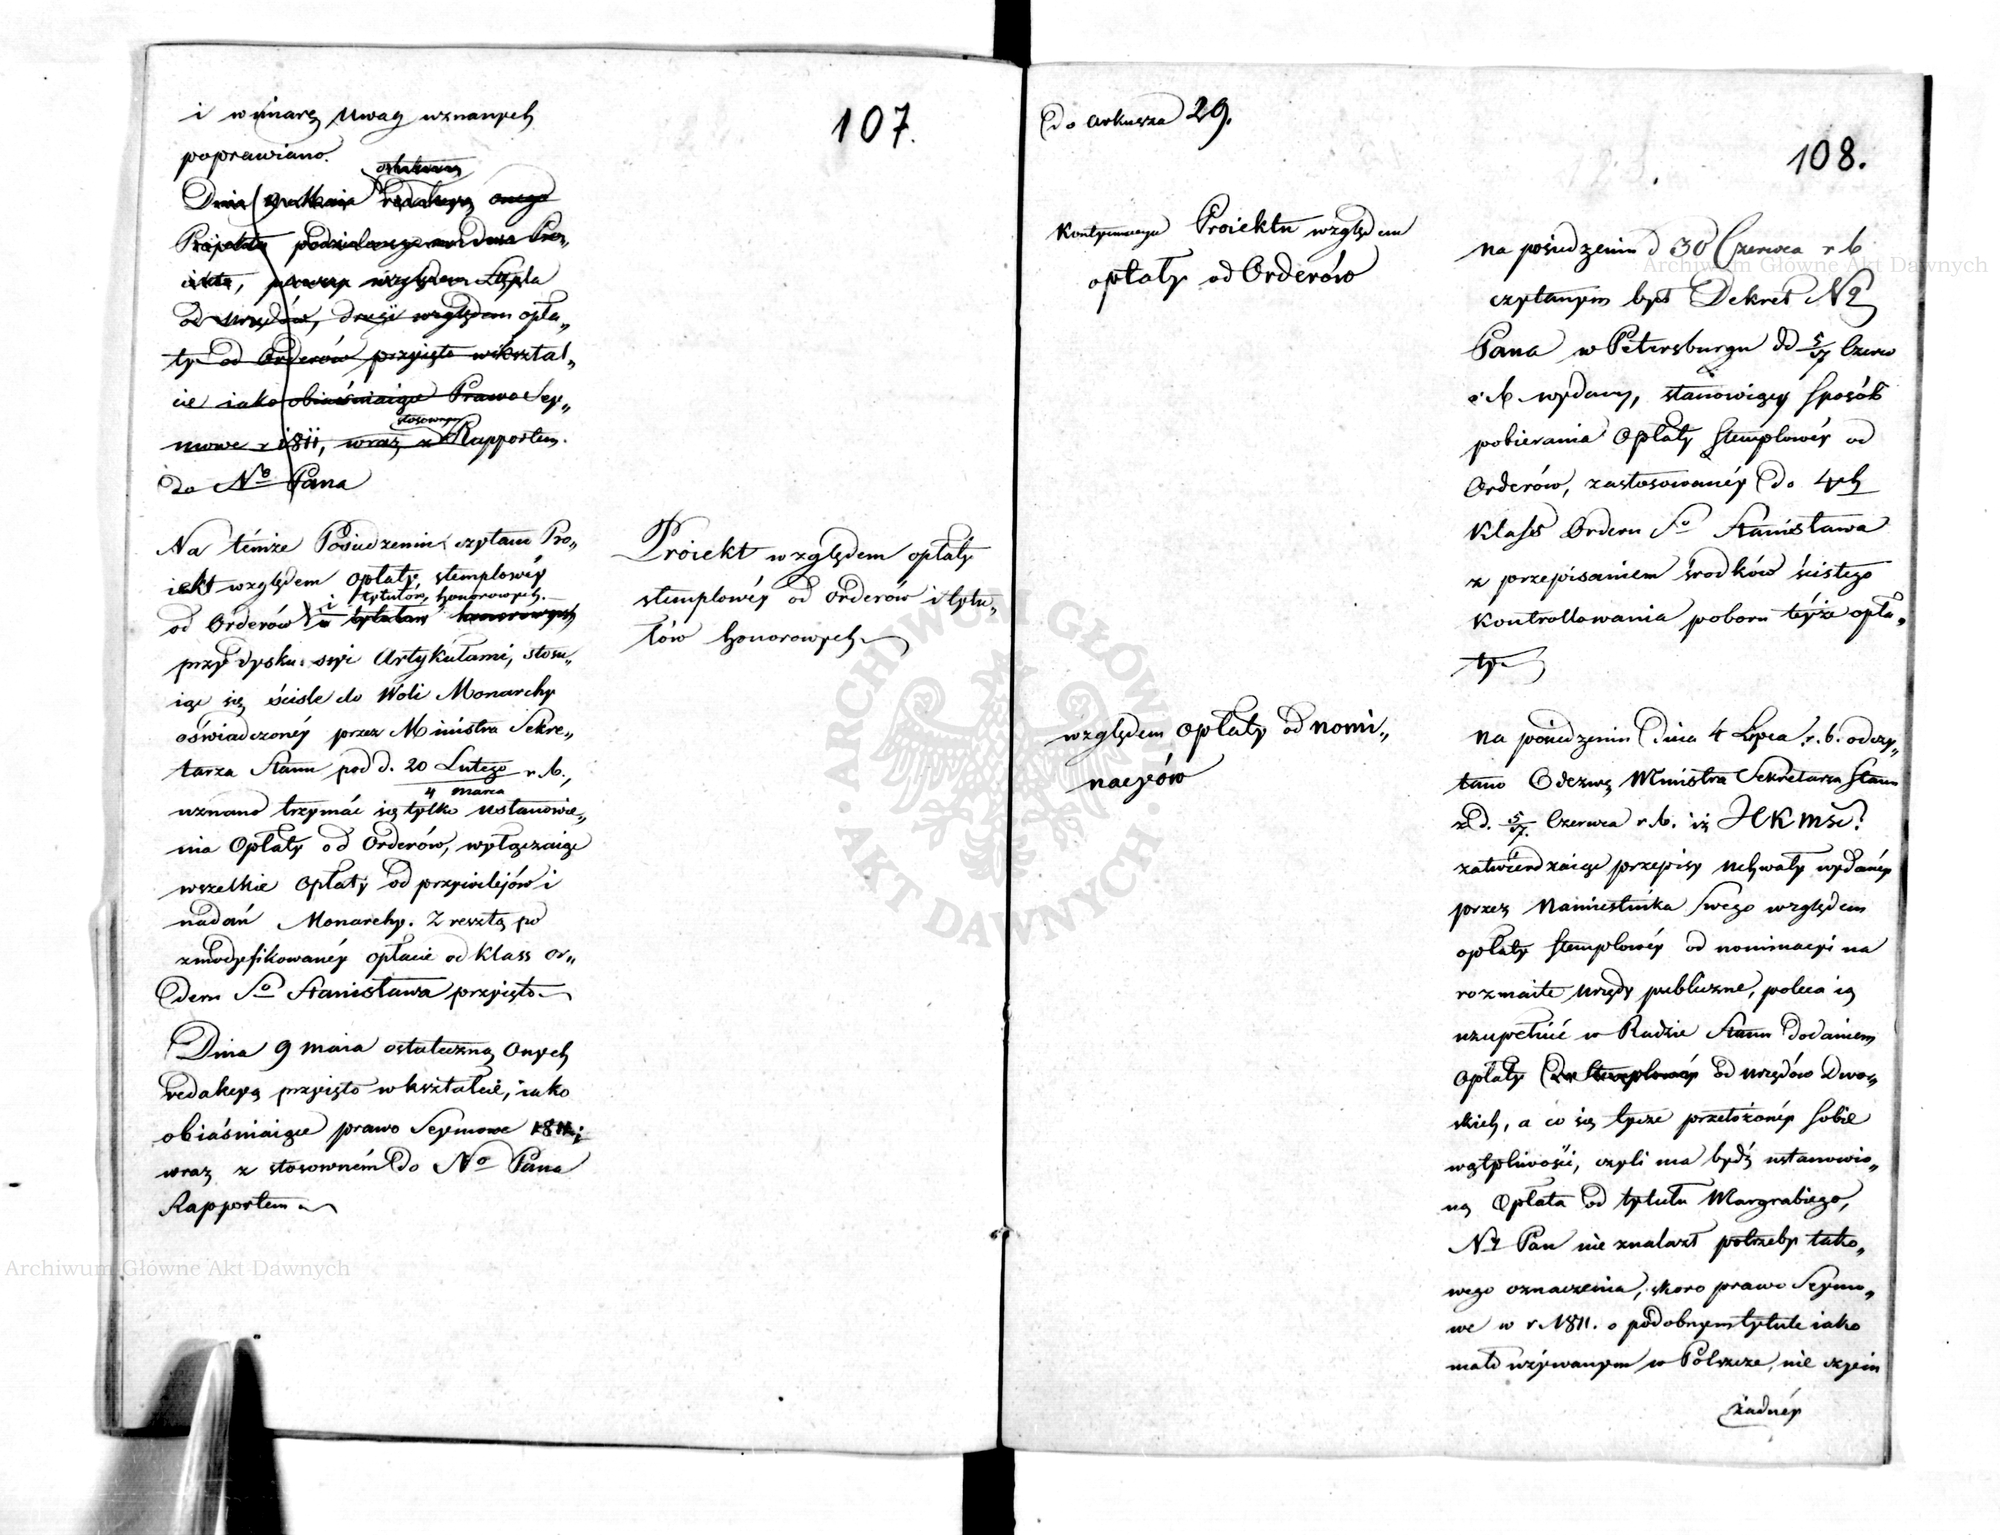 107.
i w miarę uwag uznanych
poprawiano.
ostateczną
Dnia 9 Maia redakcyą onego
Projektu podzielonego na dwa Pro„
iekta, pierwszy względem Stępla
od urzędów, drugi względem opła„
ty od Orderów przyięto w kształ„
cie iako obiaśniaiące Prawo Sey„
stosownym
mowe r 1811, wraz z Rapportem.
do No Pana
Na témże Posiedzeniu czytano Pro„
iekt względem opłaty stemplowéy
i tytułów honorowych.
od Orderów i tytułów honorowych
przy dyskussyi Artykułami, stosu„
iąc się ściśle do Woli Monarchy
oświadczonéy przez Ministra Sekre„
tarza Stanu pod d. 20 Lutego r. b.,
4 Marca
uznano trzymać się tylko ustanowie„
nia Opłaty od Orderów, wyłączaiąc
wszelkie Opłaty od przywilejów i
nadań Monarchy. Z resztą po
zmodyfikowanéy opłacie od klass or„
deru So Stanisława przyięto
Dnia 9 maia ostateczną Onych
redakcyą przyięto w kształcie, iako
obiaśniaiące prawo Seymowe 1811;
wraz z stosowném do No Pana
Rapportem
Proiekt względem opłaty
stemplowéy od orderów i tytu„
łów honorowych
do arkusza 29.
108.
Kontynuacya Proiektu względem
opłaty od Orderów
na posiedzeniu d 30 Czerwca r b
czytanym był Dekret No
Pana w Petersburgu dd 5/17 Czerw
r. b. wydany, stanowiący sposób
pobierania Opłaty stemplowéy od
Orderów, zastosowanéy do 4ch
Klass Orderu So Stanisława
z przepisaniem środków ścisłego
kontrollowania poboru téyże opła„
ty
względem opłaty od nomi„
nacyów
Na posiedzeniu Dnia 4 Lipca r. b. odczy„
tano Odezwę Ministra Sekretarza Stanu
z d. 5/17. Czerwca r. b. iż JKMść
zatwierdzaiąc przepisy uchwały wydanéy
przez Namiestnika Swego względem
opłaty stemplowéy od nominacyi na
rozmaite urzędy publiczne, poleca ią
uzupełnić w Radzie Stanu dodaniem
Opłaty stemplowéy od urzędów Dwor„
skich, a co się tycze przełożonéy sobie
wątpliwości, czyli ma bydź ustanowio„
ną Opłata od tytułu Margrabiego,
Ny Pan nie znalazł potrzeby tako„
wego oznaczenia, skoro prawo Seymo„
we w r. 1811. o podobnym tytule iako
mało używanym w Polszcze, nie czyni
żadnéy
Archiwum Główne Akt Dawnych
Archiwum Główne Akt Dawnych
ARCHIWUM GŁÓWNE AKT DAWNYCH